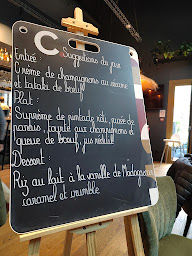 C Suggestions du jour
Entrée :
Crème de champignons au sésame
et tataki de bœuf
Plat :
Suprême de pintade rôti, purée de
panais, fagoté aux champignons et
queue de bœuf, jus réduit
Dessert :
Riz au lait à la vanille de Madagascar
caramel et crumble